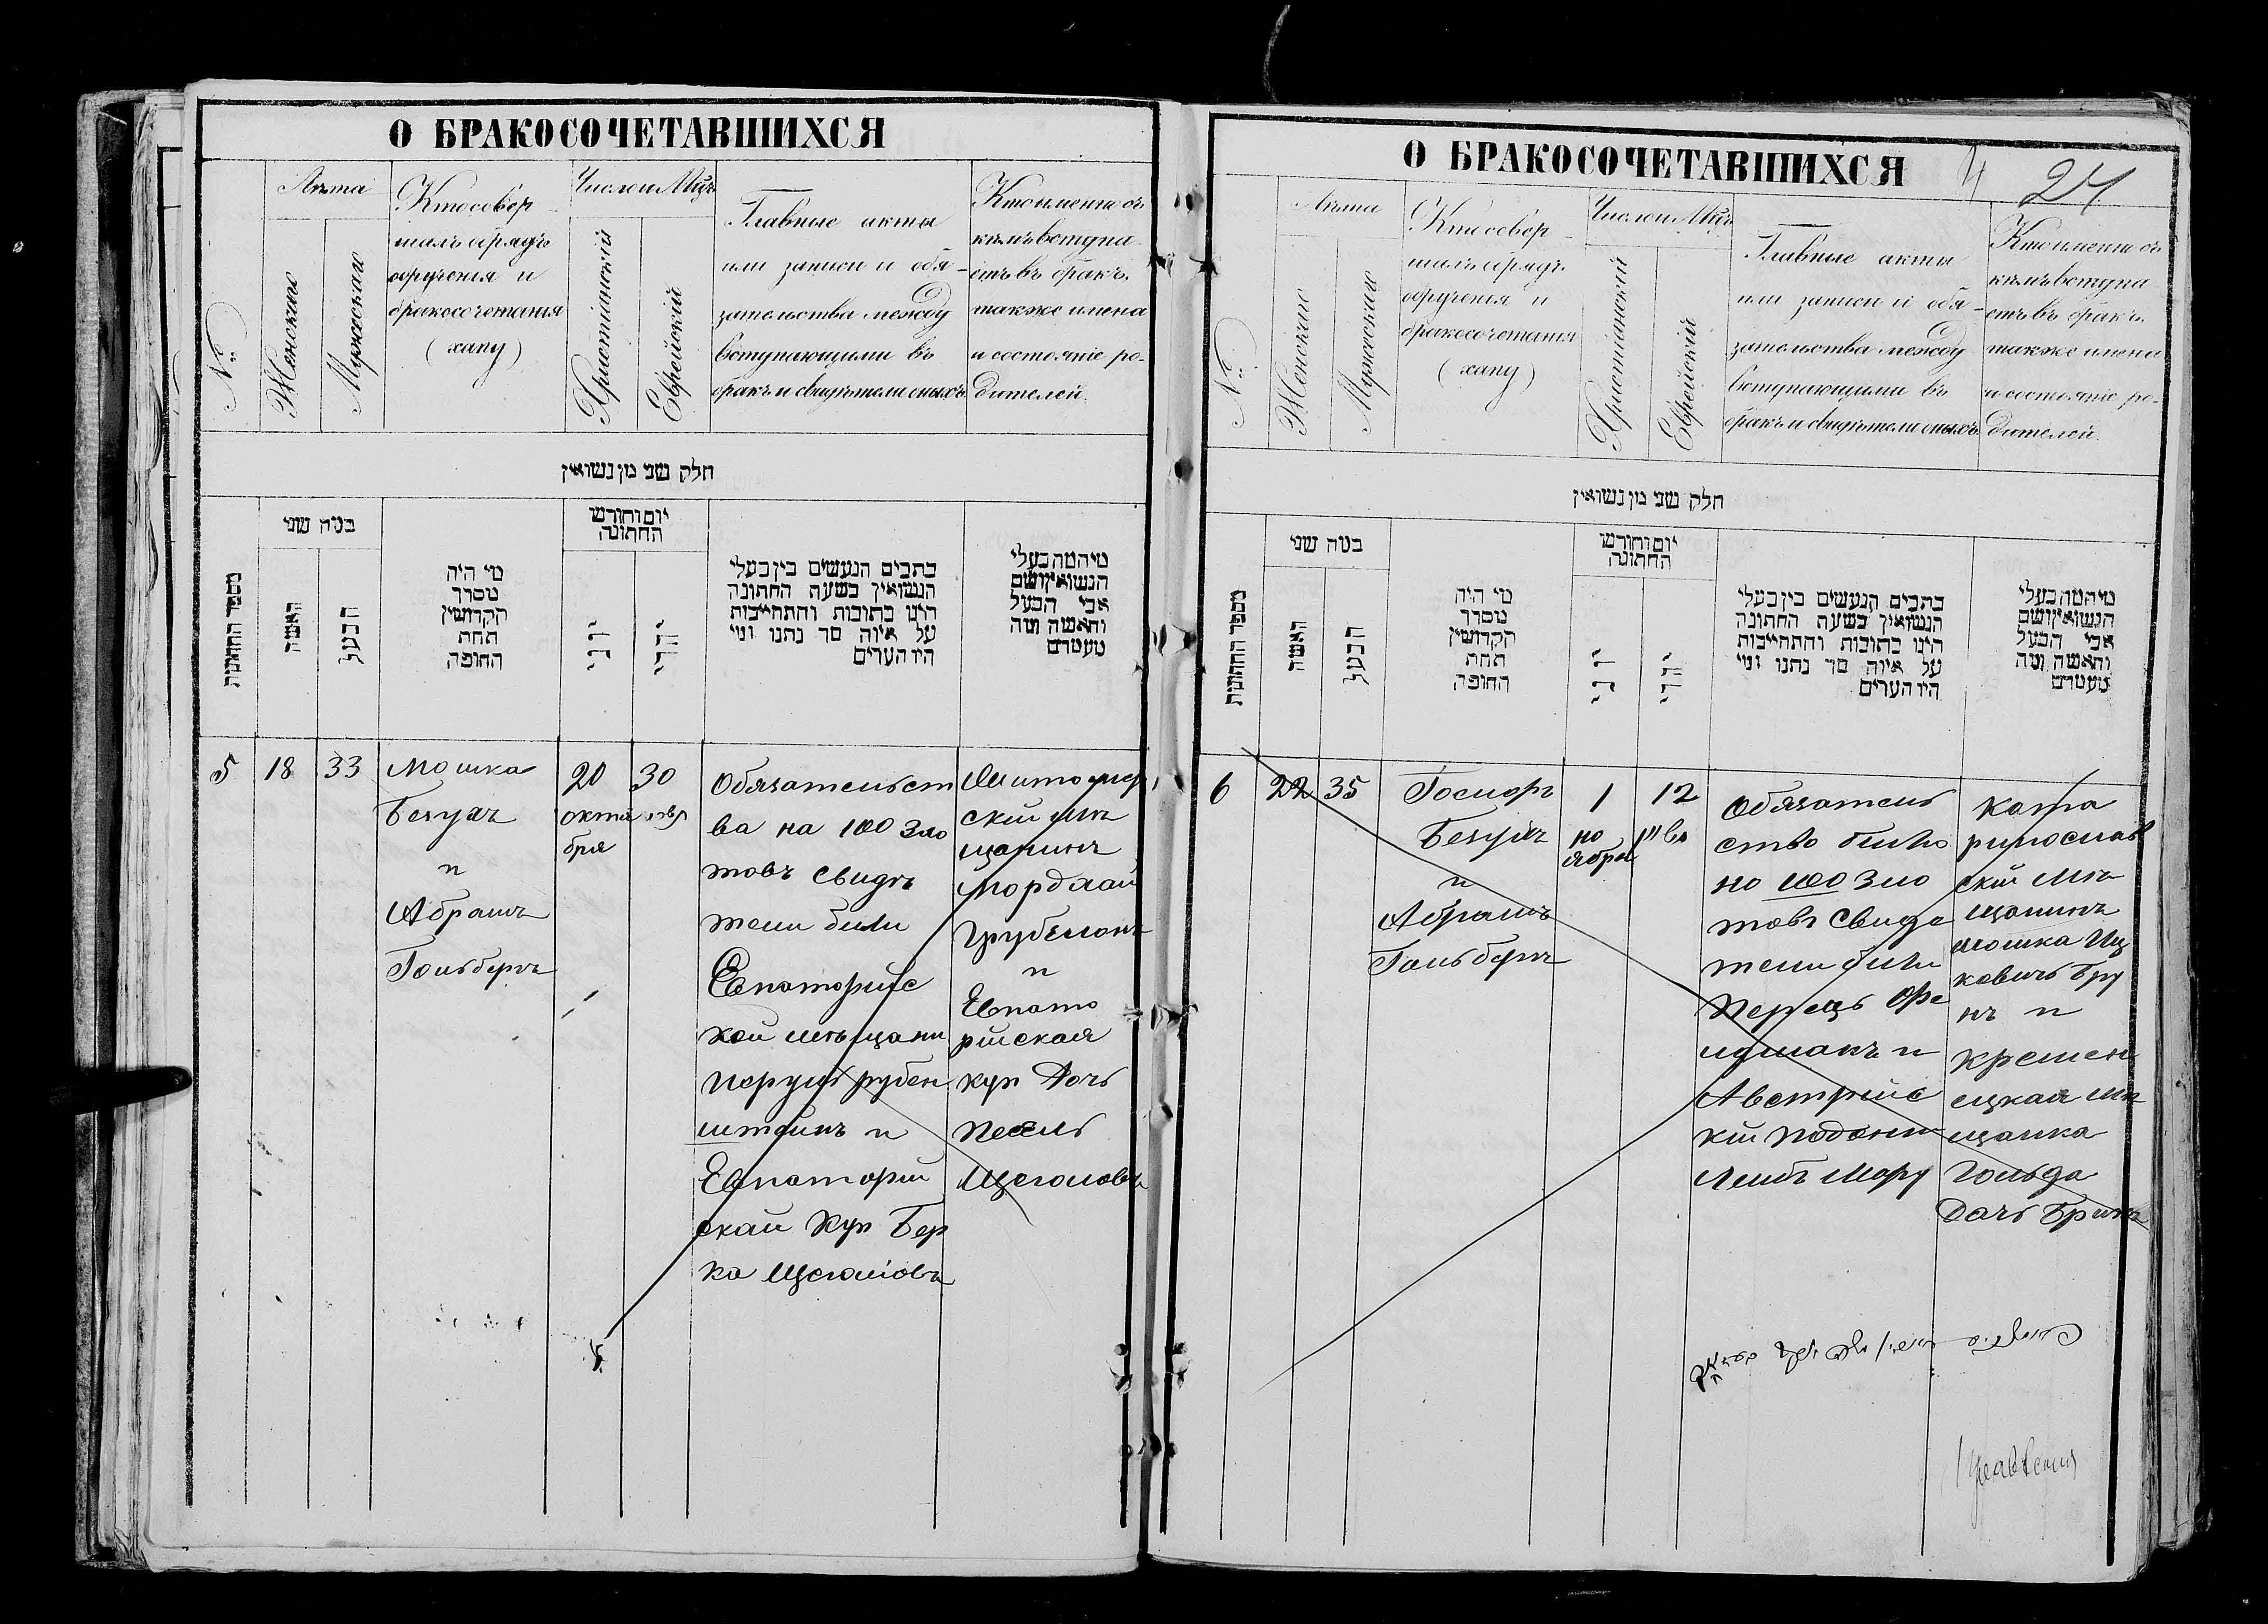 О БРАКОСОЧЕТАВШИХСЯ
№:
Лѣта
Женскаго
Мужескаго
Кто совер-
шалъ обрядъ
обрученія и
бракосочетанія
(хапу)
Число и Мцъ
Христіанскій
Еврейскій
Главные акты
или записи и обя-
зательства между
вступающими въ
бракъ и свидѣтели оныхъ
Кто именно съ
кѣмъ вступа-
етъ въ бракъ,
также имена
и состояніе ро-
дителей.
חלק שני מן נשואין
מספר החתונות
במה שני
האשה
הבעל
מי היה
מסדר
הקדושין
תחת
החופה
יום וחודש
החתונה
יוני
יהודי
כתבים הנעשים בין בעלי
הנשואין בשעת החתונה
היינו כתובות והתחייבות
על איזה סך נתנו ומי
היו הערים
מי המה בעלי
הנשואין ושם
אבי הבעל
והאשה ומה
מעמדם
5
18
33
Мошка
Безухъ
и
Абрамъ
Гольберъ
20
октя
бря
30
Обязательст
ва на 100 Зло
товъ Свидѣ
тели били
Евпаторійс
кой мѣщани
рубен
штейнъ и
Евпаторій
скай Куп Бер
ка Щеголовъ
скій мѣ
щанинъ
Мордхай
и
Евпато
рійская
куп Дочь
Песель
Щеголовъ
О БРАКОСОЧЕТАВШИХСЯ
24
№:
Лѣта
Женскаго
Мужескаго
Кто совер-
шалъ обрядъ
обрученія и
бракосочетанія
(хапу)
Число и Мцъ
Христіанскій
Еврейскій
Главные акты
или записи и обя-
зательства между
вступающими въ
бракъ и свидѣтели оныхъ
Кто именно съ
кѣмъ вступа-
етъ въ бракъ,
также имена
и состояніе ро-
дителей.
חלק שני מן נשואין
מספר החתונות
במה שני
האשה
הבעל
מי היה
מסדר
הקדושין
תחת
החופה
יום וחודש
החתונה
יוני
יהודי
כתבים הנעשים בין בעלי
הנשואין בשעת החתונה
היינו כתובות והתחייבות
על איזה סך נתנו ומי
היו הערים
מי המה בעלי
הנשואין ושם
אבי הבעל
והאשה ומה
מעמדם
6
22
35
Безухъ
и
Абрамъ
Гольберъ
1
но
ября
12
Обязатель
ство било
но 100 Зло
товъ Свиде
тели били
Перецъ
и
Австрійс
кій подон
Лейбъ
Като
ринослав
скій мѣ
щанинъ
Мошка Иц
ковичъ Бру
нъ и
Кремен
ецкая мѣ
щанка
Гольда
Дочь